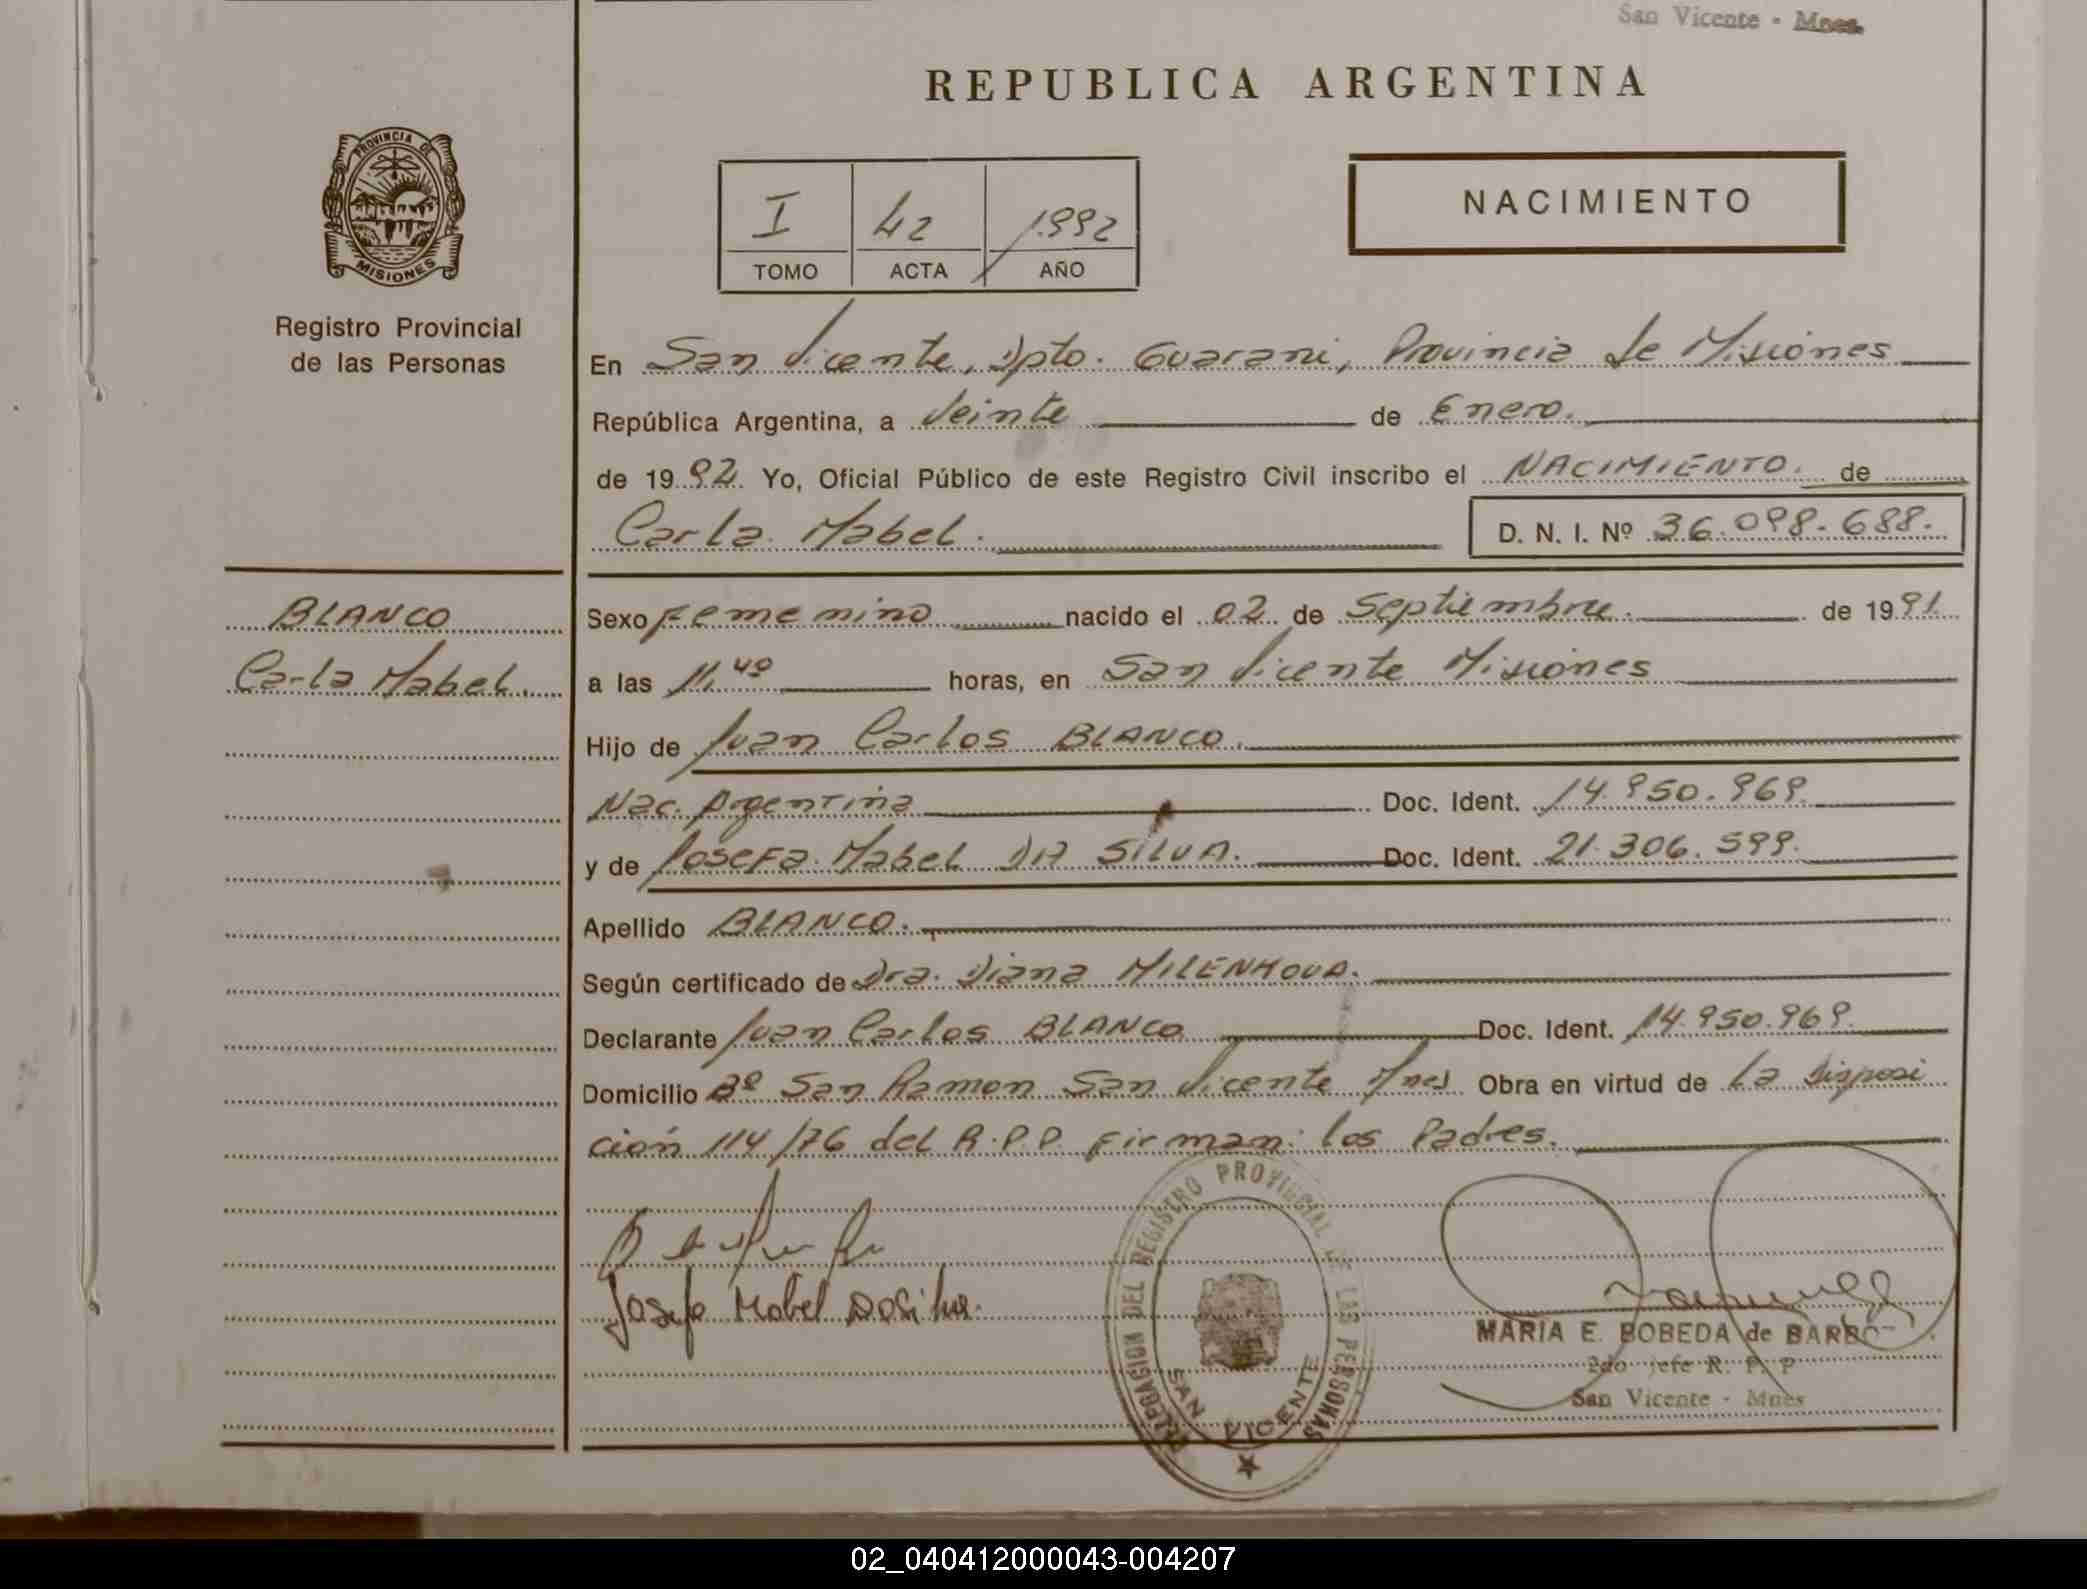 San Vicente - Mnes.
REPUBLICA ARGENTINA
PROVINCIA DE
MISIONES
Registro Provincial
de las Personas
I 42 1992
TOMO ACTA AÑO
NACIMIENTO
En San Vicente, Dpto. Guarani, Provincia de Misiones
República Argentina, a Veinte de Enero.
de 1992. Yo, Oficial Público de este Registro Civil inscribo el NACIMIENTO. de
Carla Mabel.
D. N. I. Nº 36.098.688.
BLANCO
Carla Mabel.
Sexo Femenino nacido el 02 de Septiembre. de 1991.
a las 11,40 horas, en San Vicente Misiones
Hijo de Juan Carlos BLANCO.
Nac. Argentina Doc. Ident. 14.950.969.
y de Josefa Mabel DA SILVA. Doc. Ident. 21.306.599.
Apellido BLANCO.
Según certificado de Dra. Diana MILENKOVA.
Declarante Juan Carlos BLANCO Doc. Ident. 14.950.969.
Domicilio Bº San Ramon San Vicente Mnes Obra en virtud de La Disposi
ción 114/76 del R.P.P. Firman: los Padres.
Josefa Mabel Da Silva.
DELEGACION DEL REGISTRO PROVINCIAL DE LAS PERSONAS
SAN VICENTE
MARIA E. BOBEDA de BARBO
2do jefe R. P. P
San Vicente - Mnes
02_040412000043-004207